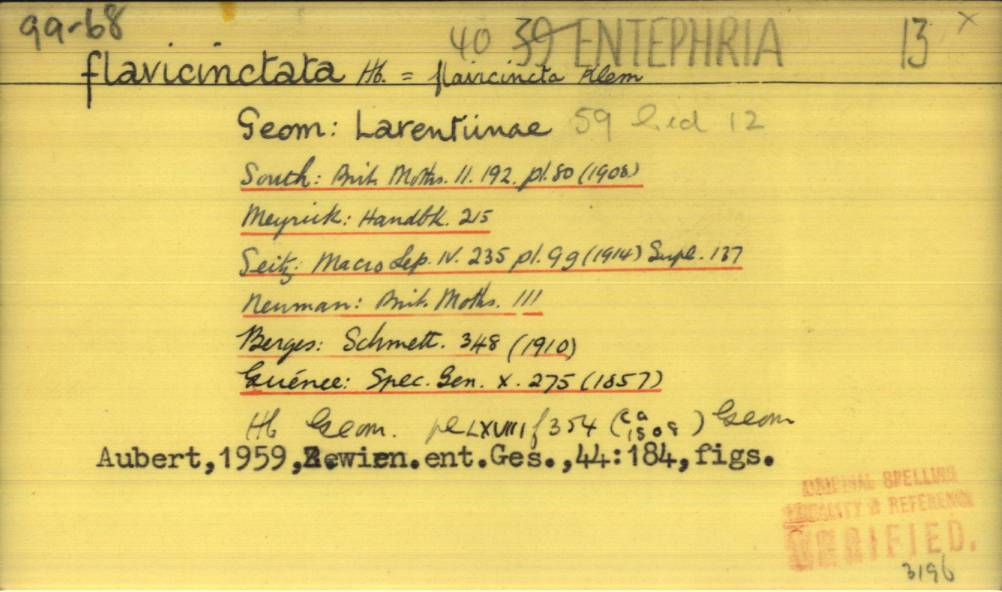 99-68
40 39 ENTEPHRIA 13 x
flavicinctata Hb. = flavicincta Alem
Geom: Larentiinae 59 12
South: Brit. Moths. II. 192. pl. 80 (1908)
Meyrick: Handbk. 215
Seitz: Macro Lep. IV. 235 pl. 9g (1914) Supl. 137
Newman: Brit. Moths. 111
Berges: Schmett. 348 (1910)
Guénee: Spec. Gen. X. 275 (1857)
Hb Geom. pl LXVIII f 354 (ca 1808) Geom
Aubert,1959,Z.wien.ent.Ges.,44:184,figs.
ORIGINAL SPELLING
LOCALITY & REFERENCE
VERIFIED.
3196